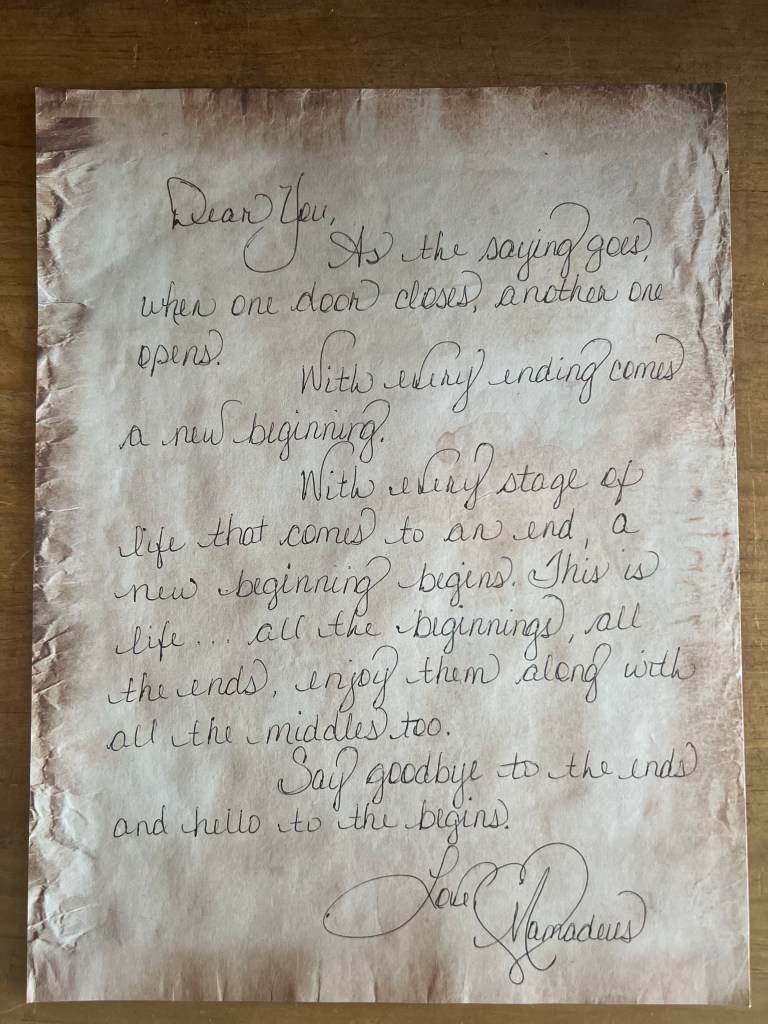 Dear You,
As the saying goes,
when one door closes, another one
opens.
With every ending comes
a new beginning.
With every stage of
life that comes to an end, a
new beginning begins. This is
life... all the beginnings, all
the ends, enjoy them along with
all the middles too.
Say goodbye to the ends
and hello to the begins.
Love,
Mamadeus